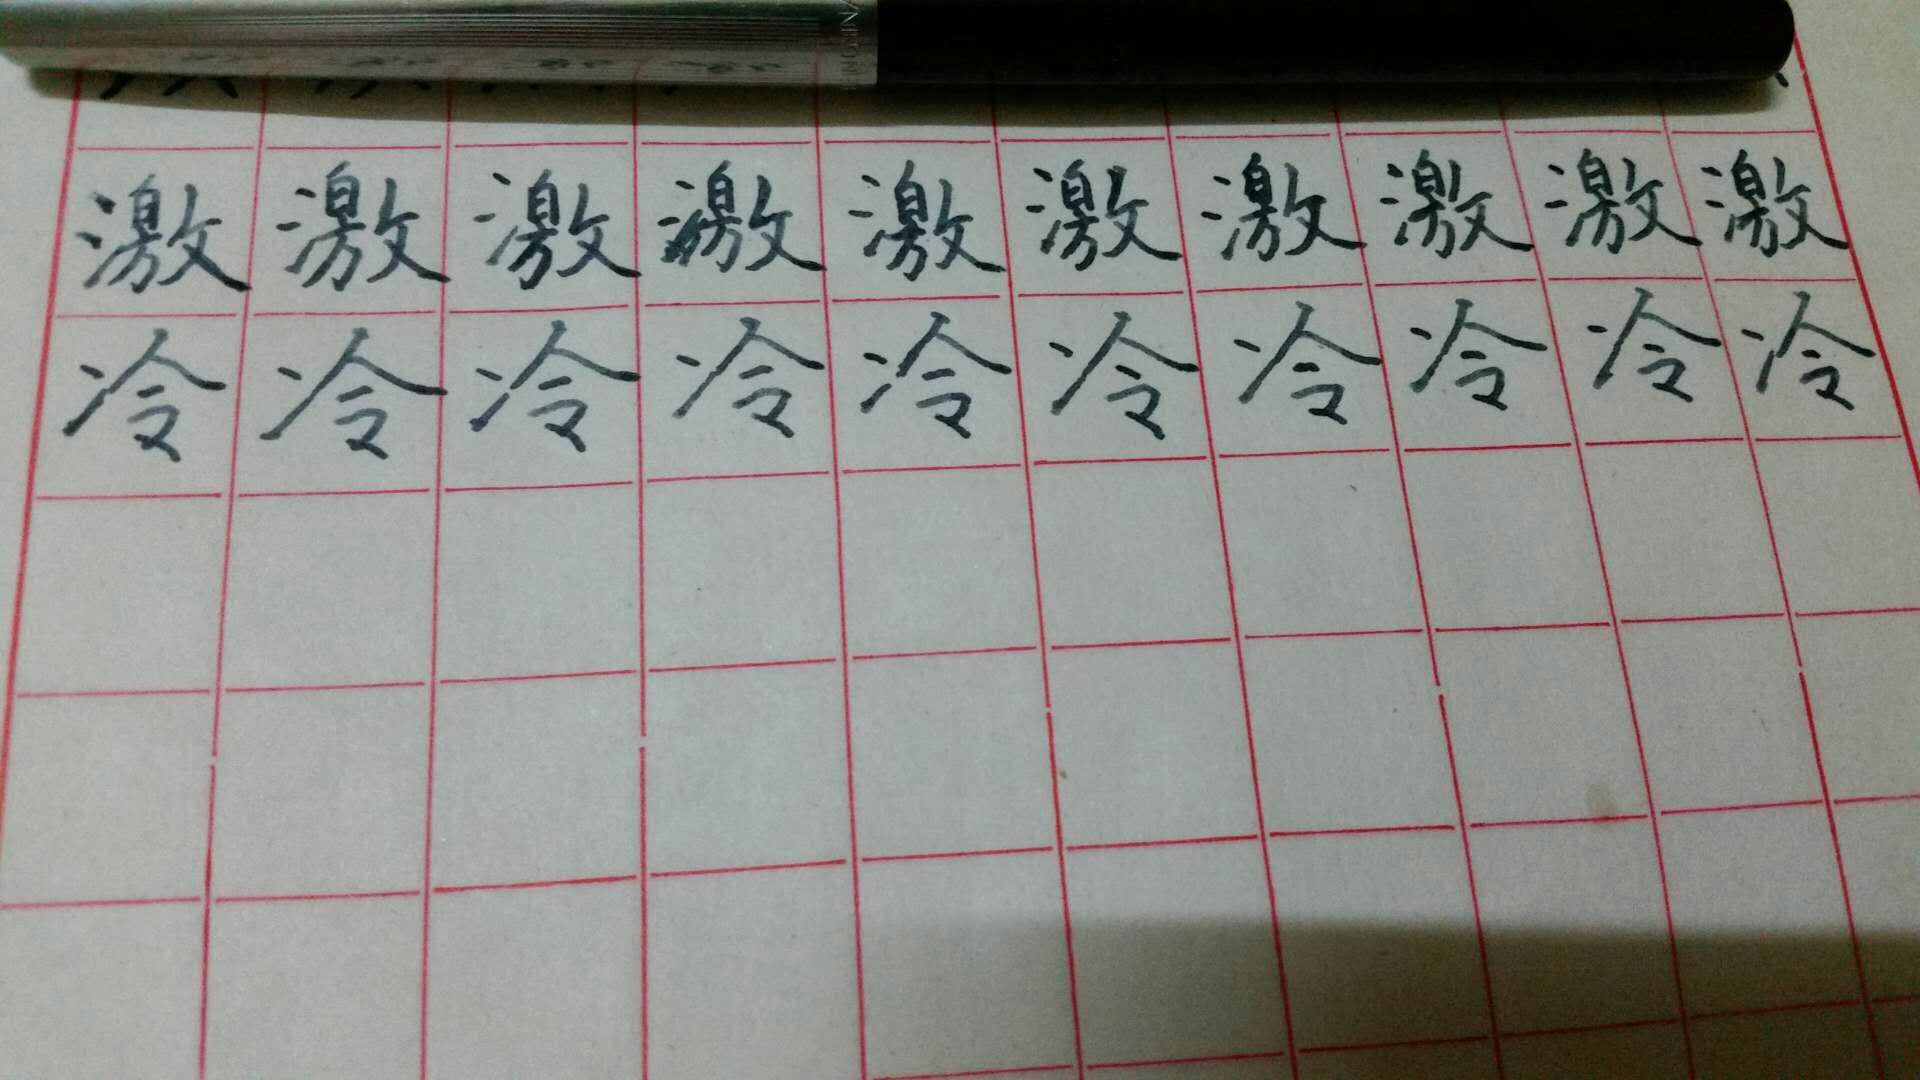 激激激激激激激激激激
冷冷冷冷冷冷冷冷冷冷